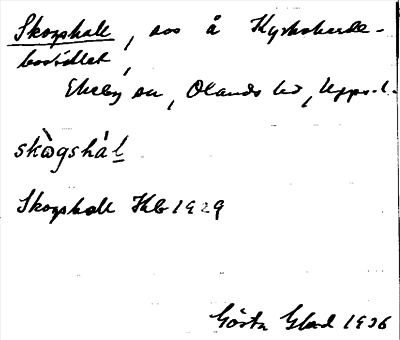 Skogshall, sos å Kyrkoherde-
bostället,
Ekeby sn, Olands hd, Upps.l.
skògshál
Skogshall Hkb 1929
Gösta Glad 1936